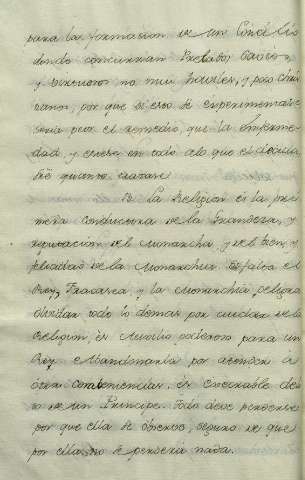 para la formacion de un Concilio
donde concurrian Prelados Sabios,
y virtuosos, no mui habiles, y poco
por que si eso se experimentase
seria peor el remedio, que la enferme-
dad, y creer en todo a lo que el
quanto tratan
La Religion es la pri
mera conductora de la Grandeza, y
reputacion del Monarcha, y del bien, y
felicidad de la Monarchia. Si falta el
Rey, fracasa, y la Monarchia peligra
olvidar todo lo demas por cuidar de la
Religion, es medio poderoso para un
Rey. Abandonarla por atender a
otras combeniencias, es execrable de
de un Principe. Todo debe perderse
por que ella se observe, seguro de que
por ella, no se perderá nada.